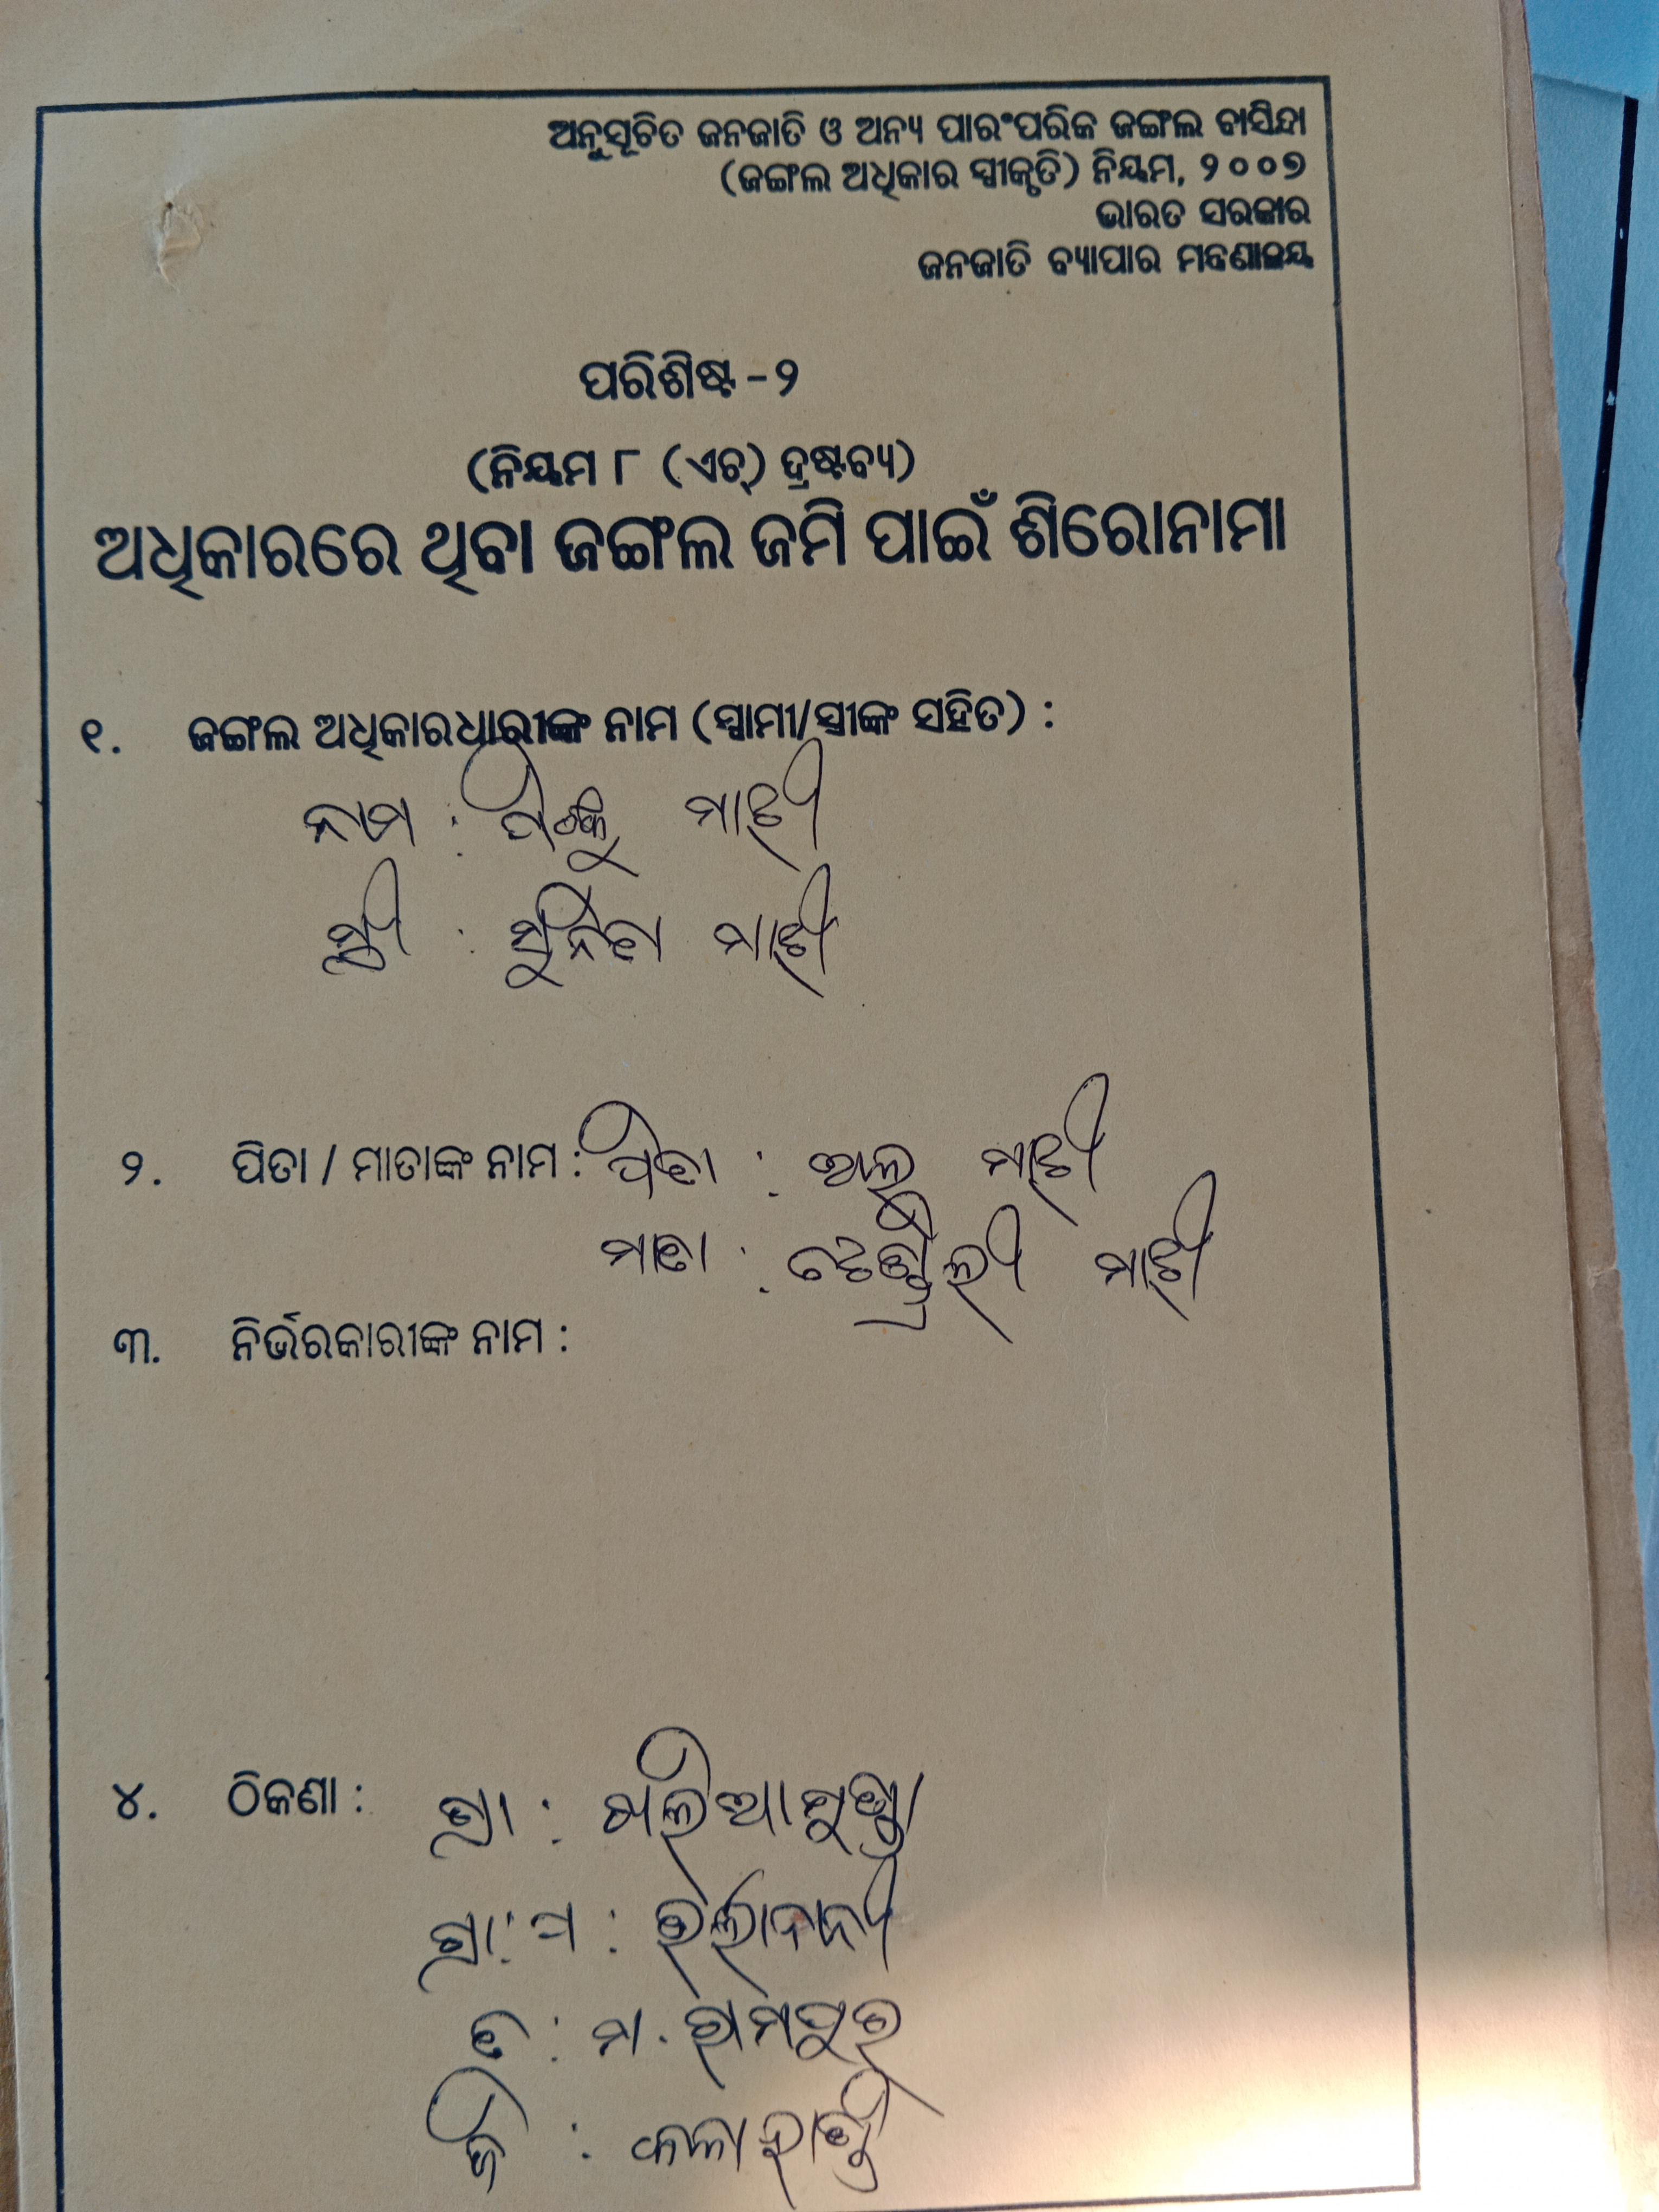 ଅନୁସୂଚିତ ଜନଜାତି ଓ ଅନ୍ୟ ପାରଂପରିକ ଜଙ୍ଗଲ ବାସିନ୍ଦା
(ଜଙ୍ଗଲ ଅଧିକାର ସ୍ୱୀକୃତି) ନିୟମ, ୨୦୦୭
ଭାରତ ସରକାର
ଜନଜାତି ବ୍ୟାପାର ମନ୍ତ୍ରଣାଳୟ
ପରିଶିଷ୍ଟ -୨
(ନିୟମ ୮ (ଏଚ୍) ଦ୍ରଷ୍ଟବ୍ୟ)
ଅଧିକାରରେ ଥିବା ଜଙ୍ଗଲ ଜମି ପାଇଁ ଶିରୋନାମା
୧. ଜଙ୍ଗଲ ଅଧିକାରଧାରୀଙ୍କ ନାମ (ସ୍ୱାମୀ/ସ୍ତ୍ରୀଙ୍କ ସହିତ) :
ନାମ : ମାଝୀ
ସ୍ତ୍ରୀ : ସୁନିତା ମାଝୀ
୨. ପିତା / ମାତାଙ୍କ ନାମ : ପିତା : ମାଝୀ
ମାତା : ମାଝୀ
୩. ନିର୍ଭରକାରୀଙ୍କ ନାମ :
୪. ଠିକଣା : ଗ୍ରା : ଖଲିଆମୁଣ୍ଡା
ଗ୍ରା:ପ :
ତ : ମ. ରାମପୁର
ଜି : କଳାହାଣ୍ଡି